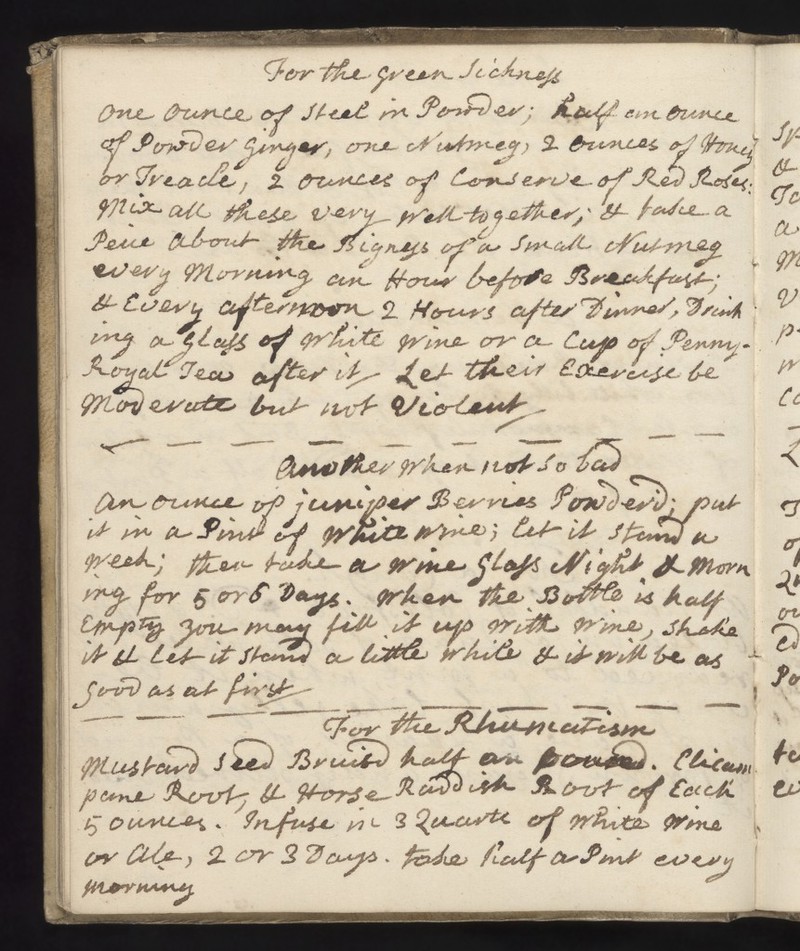 For the Green Sickness
One Ounce of Steel in Powder; half an Ounce
of Powder Ginger, one Nutmeg, 2 Ounces of Honey
or Treacle, 2 ounces of Conserve of Red Roses:
Mix all these very well together; & take a
Peice about the Bigness of a Small Nutmeg
every Morning an Hour before Breakfast;
& Every afternoon 2 Hours after Dinner, Drink
ing a Glass of white wine or a Cup of Penny-
Royal Tea after it Let their Exercise be
Moderate but not Violent
Another when not so bad
An ounce of juniper Berries Powderd; put
it in a Pint of white wine; let it stand a
week; then take a wine Glass Night & Morn
ing for 5 or 6 Days. when the Bottle is half
Empty you may fill it up with wine, shake
it & let it stand a little while & it will be as
Good as at first
For the Rhumatism
Mustard Seed Bruisd half an pound. Elicam
pane Root, & Horse Raddish Root of Each
5 ounces. Infuse in 3 Quarts of white wine
or Ale, 2 or 3 Days. take half a Pint every
morning